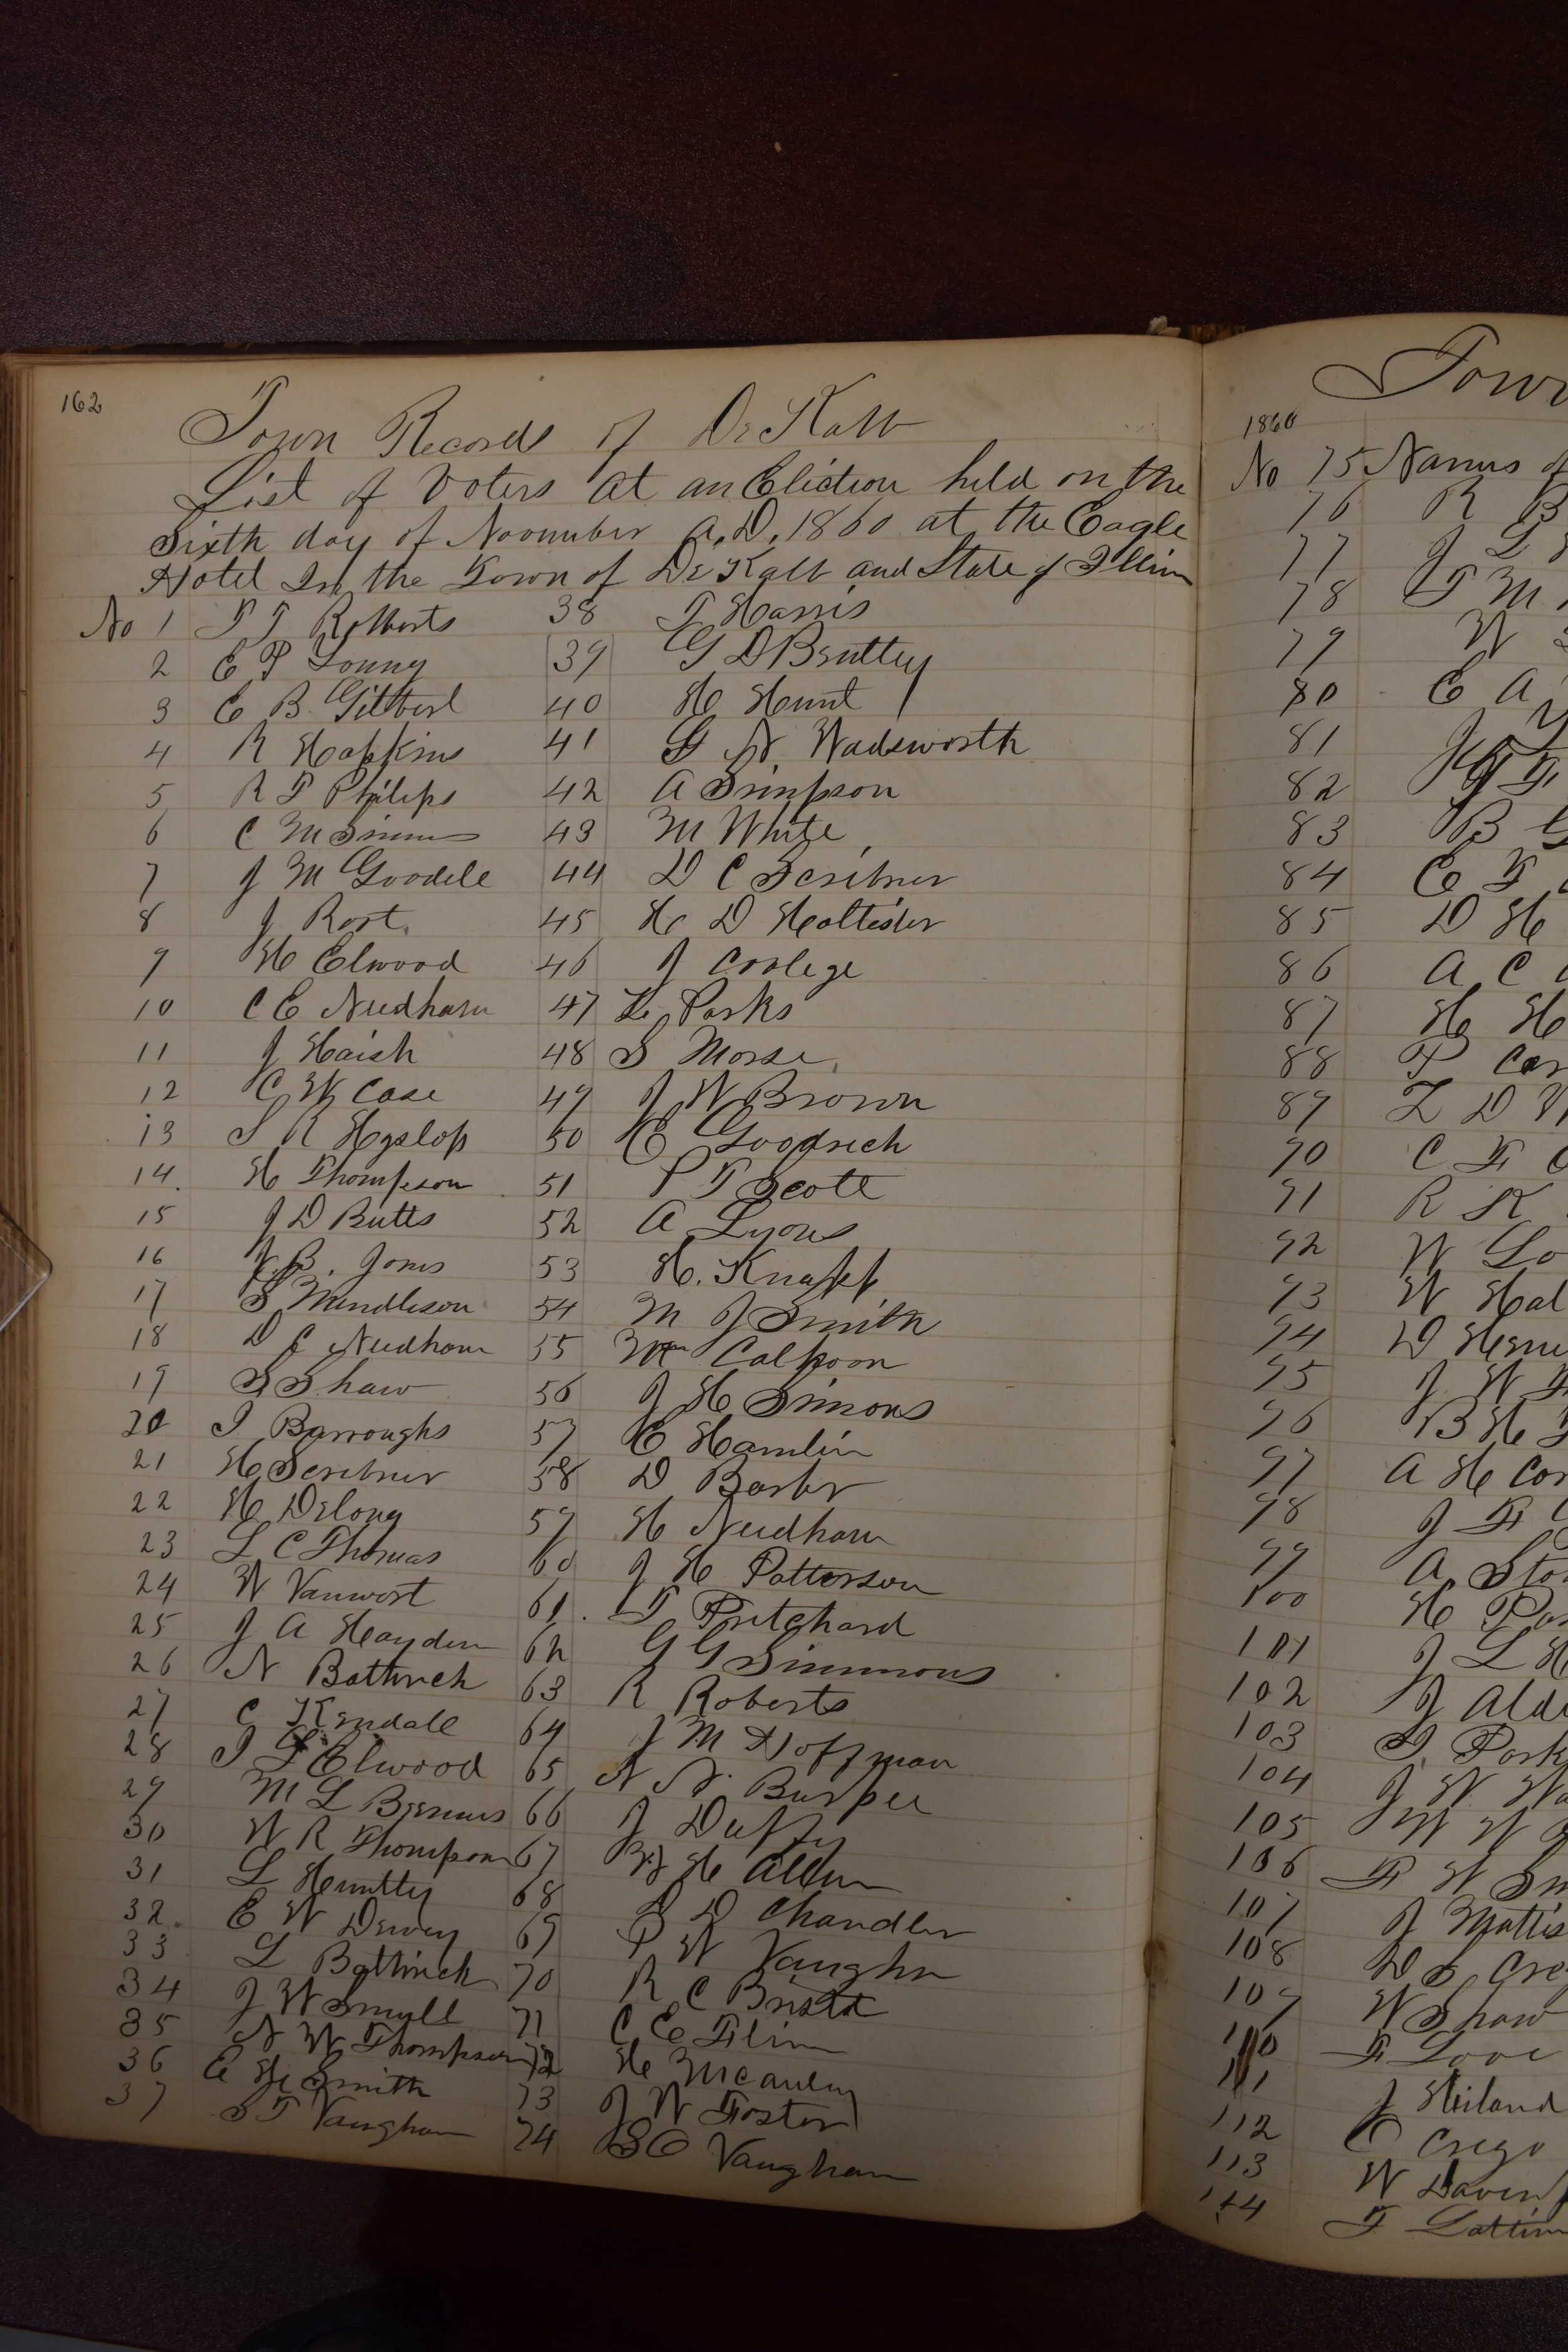 162
Town Records of De Kalb
List of Voters at an Election held on the
Sixth day of November A.D. 1860 at the Eagle
Hotel In the Town of De Kalb and State of Illin
No 1 T Roberts
2 E P Young
3 E B Gilbert
4 R Hopkins
5 R T Philips
6 C M Simms
7 J M Goodele
8 J Rost
9 H Elwood
10 C E Needham
11 J Haish
12 C W Case
13 S R Hyslop
14. H Thompson
15 J D Butts
16 B. Jones
17 S Mendleson
18 D C Needham
19 S Shaw
20 I Barroughs
21 H Scribner
22 H Delong
23 L C Thomas
24 W Vanwort
25 J A Hayden
26 N Bathrick
27 C Kendale
28 I L Elwood
29 M L Bemus
30 W R Thompson
31 L Huntley
32. E W Dewey
33 L Bathrick
34 J W Small
35 N W Thompson
36 E H Smith
37 S T Vaughan
38 T Harris
39 G D Bentley
40 H Hunt
41 G N Wadsworth
42 A Simpson
43 M White
44 D C Scribner
45 H D Hollister
46 J Coolege
47 L Parks
48 S Morse
49 J W Brown
50 E Goodrich
51 P T Scott
52 A Lyons
53 H. Knapp
54 M J Smith
55 Wm Calhoon
56 J H Simons
57 E Hamlin
58 D Barber
59 H Needham
60 J H Patterson
61. T Pritchard
62 G G Simmons
63 R Roberts
64 J M Hoffman
65 N N Burpee
66 J Duffy
67 H Allen
68 D Chandler
69 W Vaughn
70 R C Bristol
71 C E Flinn
72 H Mcauley
73 J W Foster
74 Vaughan
Town
1860
No 75 Names of
76 R B
77 J L
78 T M
79 W
80 E A
81 J
82
83 B G
84 E F
85 D H
86 A C
87 H H
88 P Car
89 Z D
90 C F
91 R K
92 W Lo
93 W Hal
94 D Hem
95 J W
96 B H
97 A H Cor
98 J F
99 A Sto
100 H Po
101 J L H
102 J Ald
103 Park
104 J W Wa
105 W
106 F W Sm
107 J Mattis
108 D S Cre
109 W Shaw
110 F Love
111 J Heiland
112 E Crego
113 W Daven
114 F Lattim